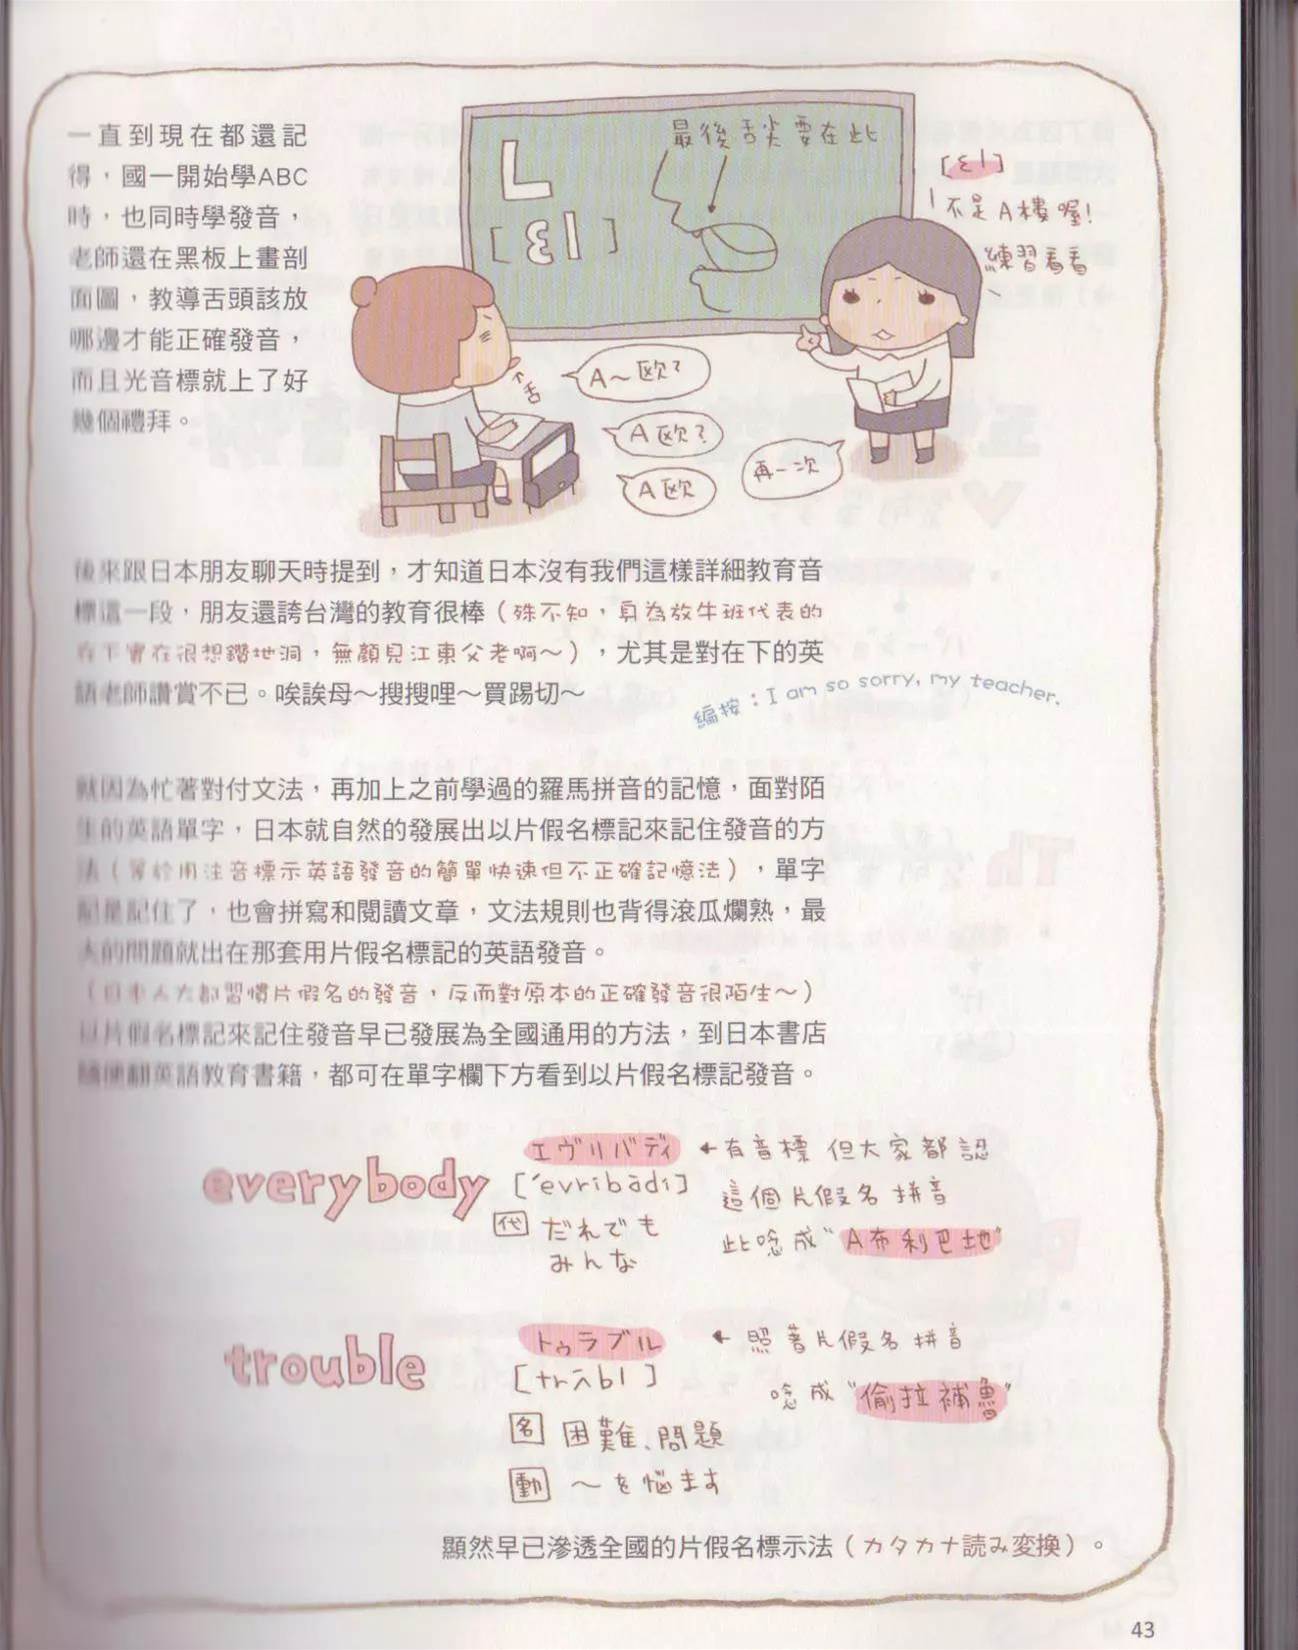 一直到現在都還記
得，國一開始學ABC
時，也同時學發音，
老師還在黑板上畫剖
面圖，教導舌頭該放
哪邊才能正確發音，
而且光音標就上了好
幾個禮拜。
最後舌尖要在此
L
[ɛl]
[ɛl]
不是A樓喔!
練習看看
不舌
A～歐?
A歐?
A歐
再一次
後來跟日本朋友聊天時提到，才知道日本沒有我們這樣詳細教育音
標這一段，朋友還誇台灣的教育很棒（殊不知，身為放牛班代表的
在下實在很想鑽地洞，無顏見江東父老啊～），尤其是對在下的英
語老師讚賞不已。唉誒母～搜搜哩～買踢切～
編按：I am so sorry, my teacher.
就因為忙著對付文法，再加上之前學過的羅馬拼音的記憶，面對陌
生的英語單字，日本就自然的發展出以片假名標記來記住發音的方
法（等於用注音標示英語發音的簡單快速但不正確記憶法），單字
記是記住了，也會拼寫和閱讀文章，文法規則也背得滾瓜爛熟，最
大的問題就出在那套用片假名標記的英語發音。
（日本人大都習慣片假名的發音，反而對原本的正確發音很陌生～）
以片假名標記來記住發音早已發展為全國通用的方法，到日本書店
隨便翻英語教育書籍，都可在單字欄下方看到以片假名標記發音。
エヴリバディ ←有音標 但大家都認
everybody [ˈevribàdi] 這個片假名拼音
代 だれでも 此唸成"A布利巴地"
みんな
トゥラブル ← 照著片假名拼音
trouble [trʌ̄bl] 唸成"偷拉補魯"
名 困難、問題
動 ～を悩ます
顯然早已滲透全國的片假名標示法（カタカナ読み変換）。
43